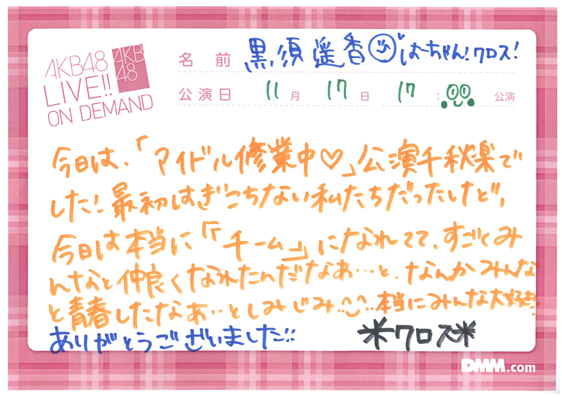 AKB48
LIVE!!
ON DEMAND
AKB
48
名前 黒須遥香 はーちゃん!クロス!
公演日 11月 17日 17:00 公演
今日は、「アイドル修業中♡」公演千秋楽で
した!最初はぎこちない私たちだったけど、
今日は本当に「チーム」になれてて、すごくみ
んなと仲良くなれたんだなあ…と、なんかみんな
と青春したなあ…としみじみ…本当にみんな大好き!!
ありがとうございました!!
*クロス*
DMM.com